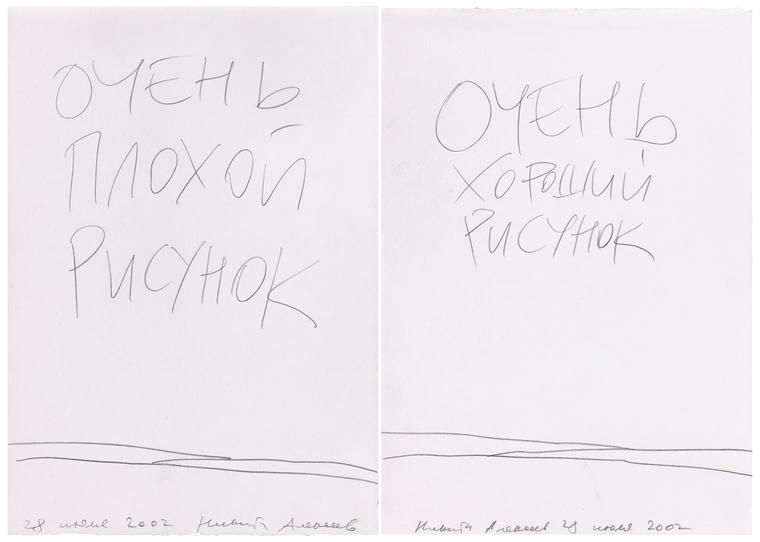 ОЧЕНЬ
ПЛОХОЙ
РИСУНОК
28 июня 2002 Никита Алексеев
ОЧЕНЬ
ХОРОШИЙ
РИСУНОК
Никита Алексеев 28 июня 2002